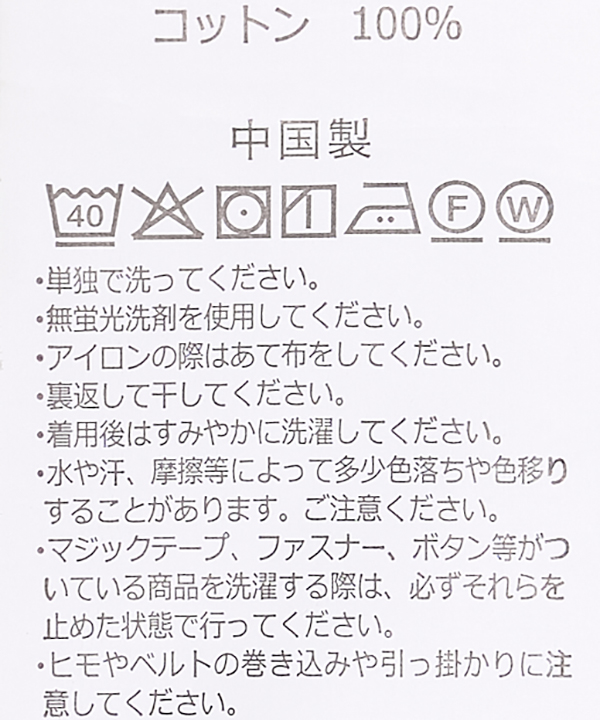 コットン 100%
中国製
40 F W
・単独で洗ってください。
・無蛍光洗剤を使用してください。
・アイロンの際はあて布をしてください。
・裏返して干してください。
・着用後はすみやかに洗濯してください。
・水や汗、摩擦等によって多少色落ちや色移り
することがあります。ご注意ください。
・マジックテープ、ファスナー、ボタン等がつ
いている商品を洗濯する際は、必ずそれらを
止めた状態で行ってください。
・ヒモやベルトの巻き込みや引っ掛かりに注
意してください。